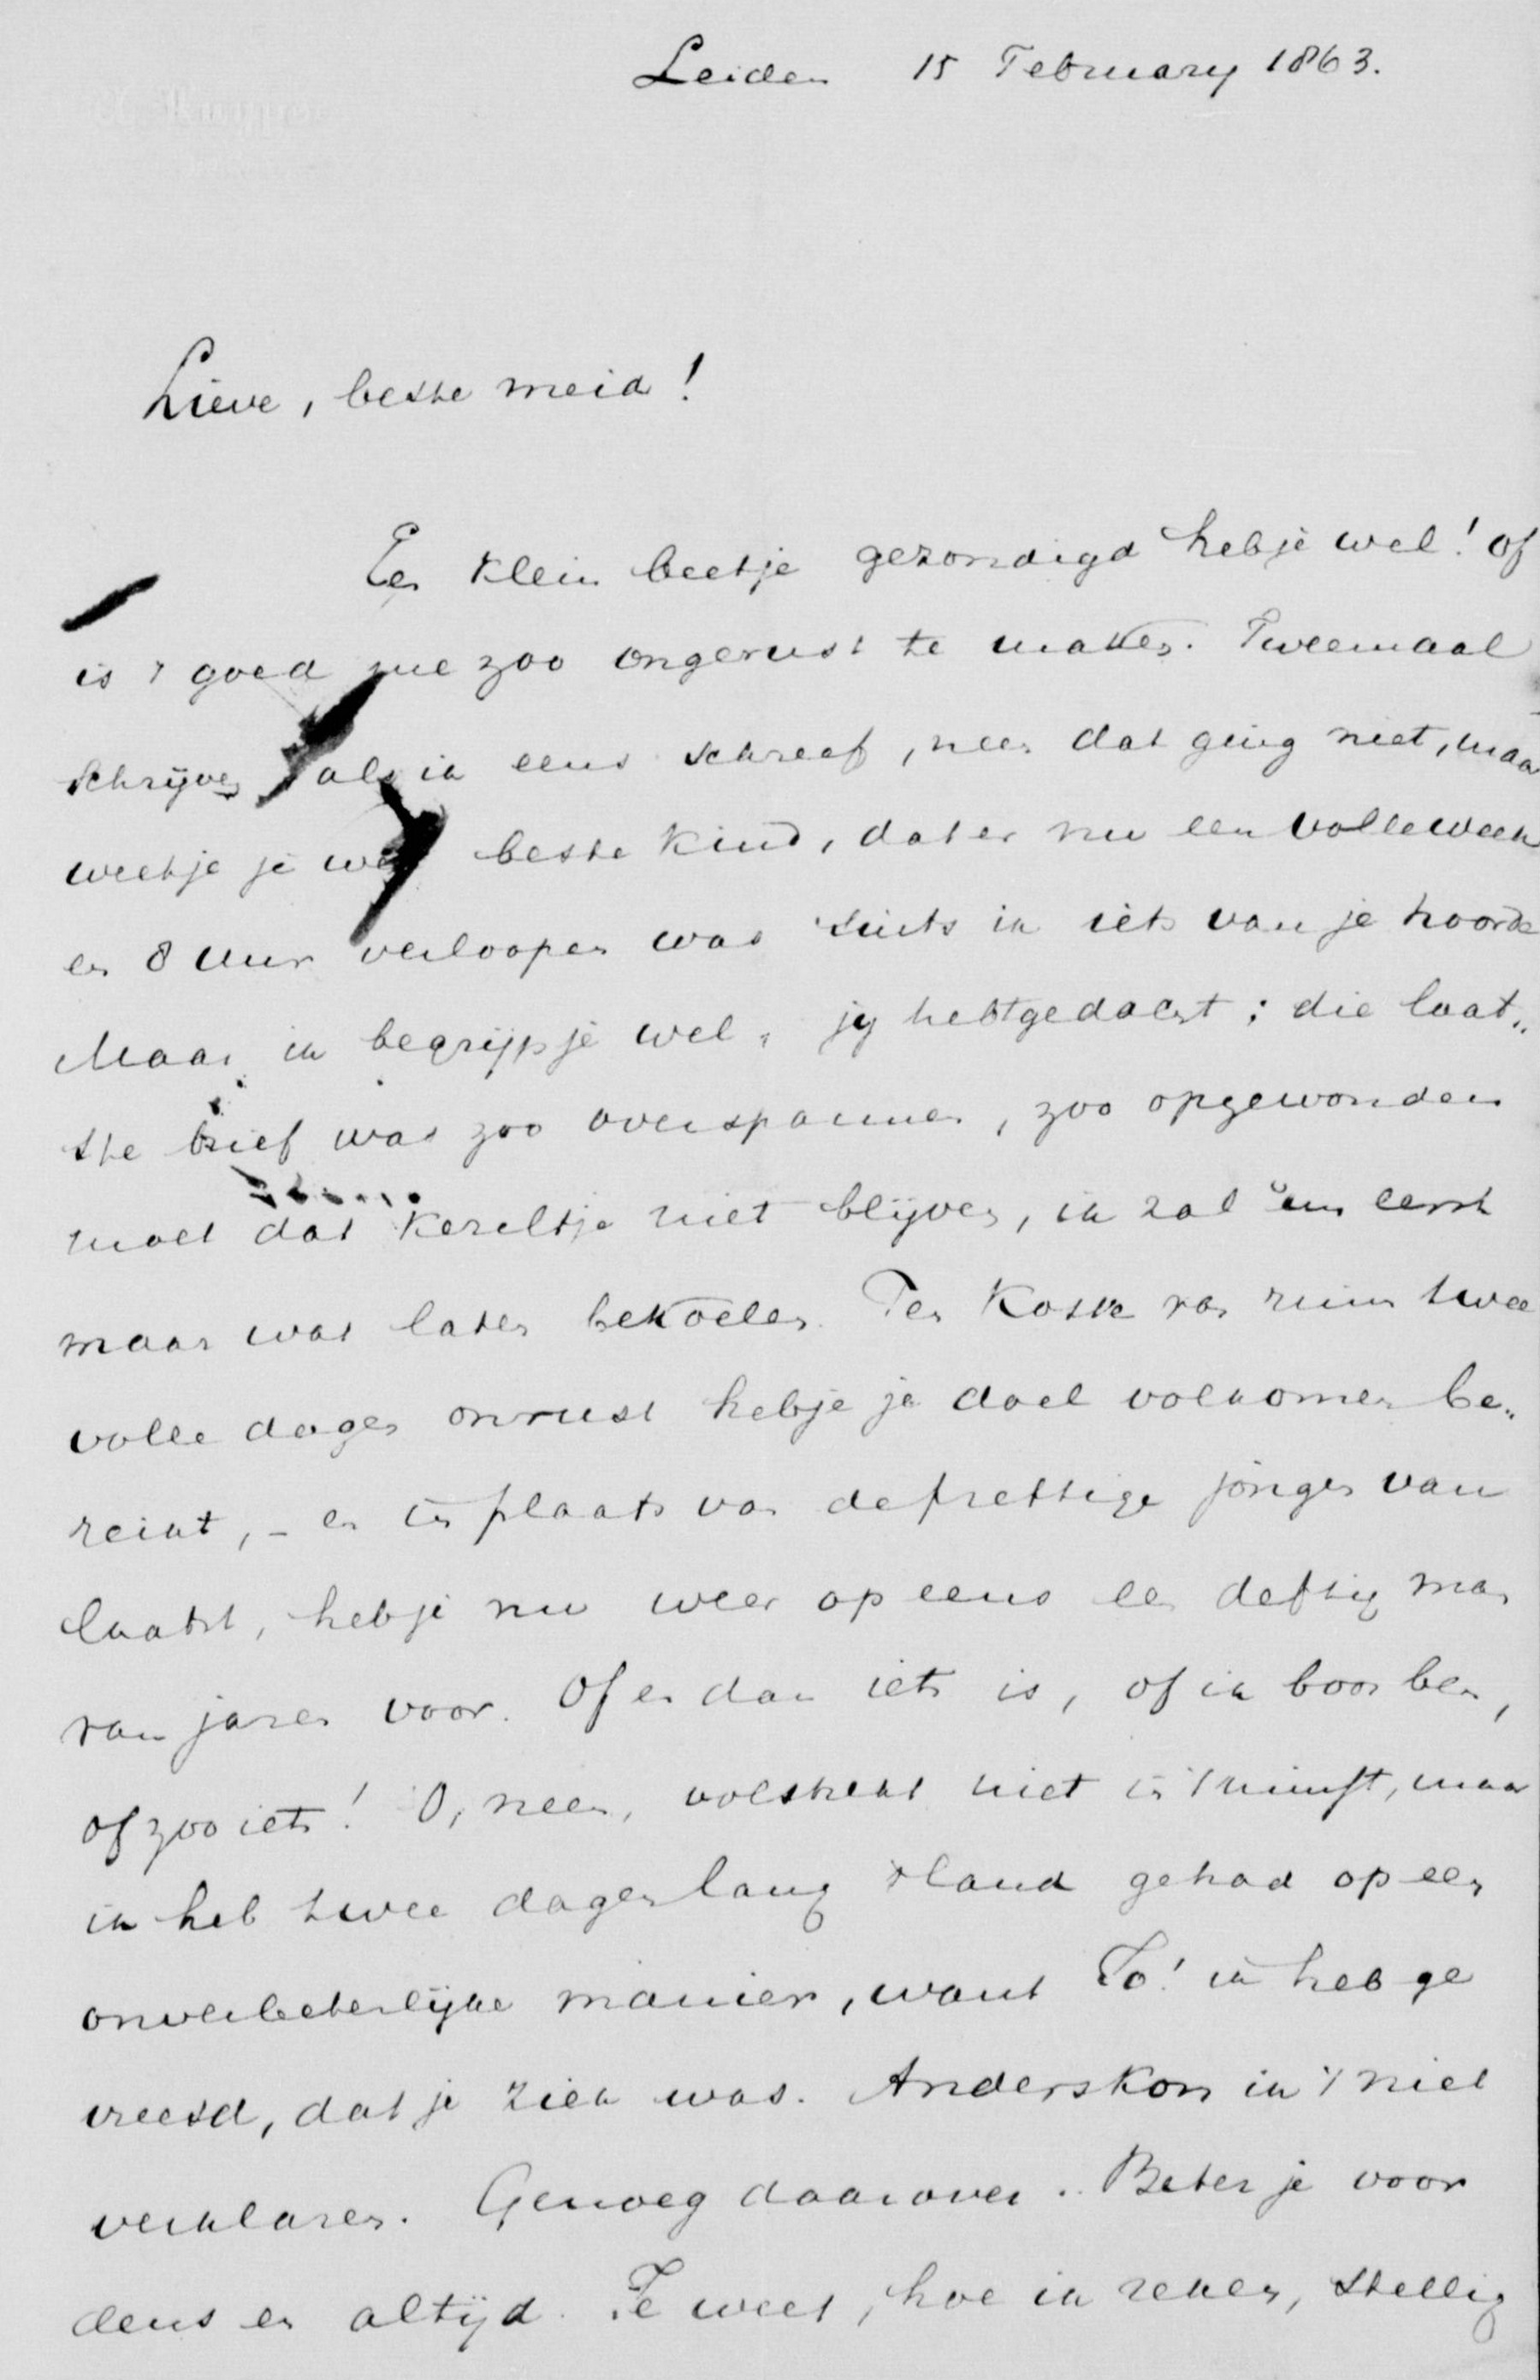 Leiden 15 February 1863.
Lieve, beste meid!
Een klein beetje gezondigd heb je wel! of
is 't goed me zoo ongerust te maken. Tweemaal
schrijven als ik eens schreef, neen dat ging niet, maar
weet je je wel beste kind, dat er nu een volle week
en 8 uur verloopen was sints ik iets van je hoorde
Maar ik begrijp je wel, jy hebt gedacht; die laat„
ste brief was zoo overspannen, zoo opgewonden
moet dat kereltje niet blijven, ik zal em eerst
maar wat laten bekoelen. Ten koste van ruim twee
volle dagen onrust heb je je doel volkomen be„
reikt, – en in plaats van de prettige jongen van
laatst, heb je nu weer op eens een deftig man
van jaren voor. Of er dan iets is, of ik boos ben,
of zoo iets! O, neen, volstrekt niet in 't minst, maar
ik heb twee dagen lang 't land gehad op een
onverbeterlijke manier, want Jo! ik heb ge
vreesd, dat je ziek was. Anders kon ik 't niet
verklaren. Genoeg daarover. Beter je voor
dens en altijd. Je weet, hoe ik reken, stellig